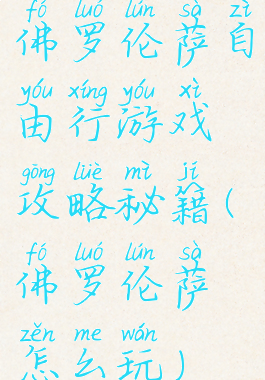 fó luó lún sà zì
佛罗伦萨自
yóu xíng yóu xì
由行游戏
gōng lüè mì jí
攻略秘籍(
fó luó lún sà
佛罗伦萨
zěn me wán
怎么玩)